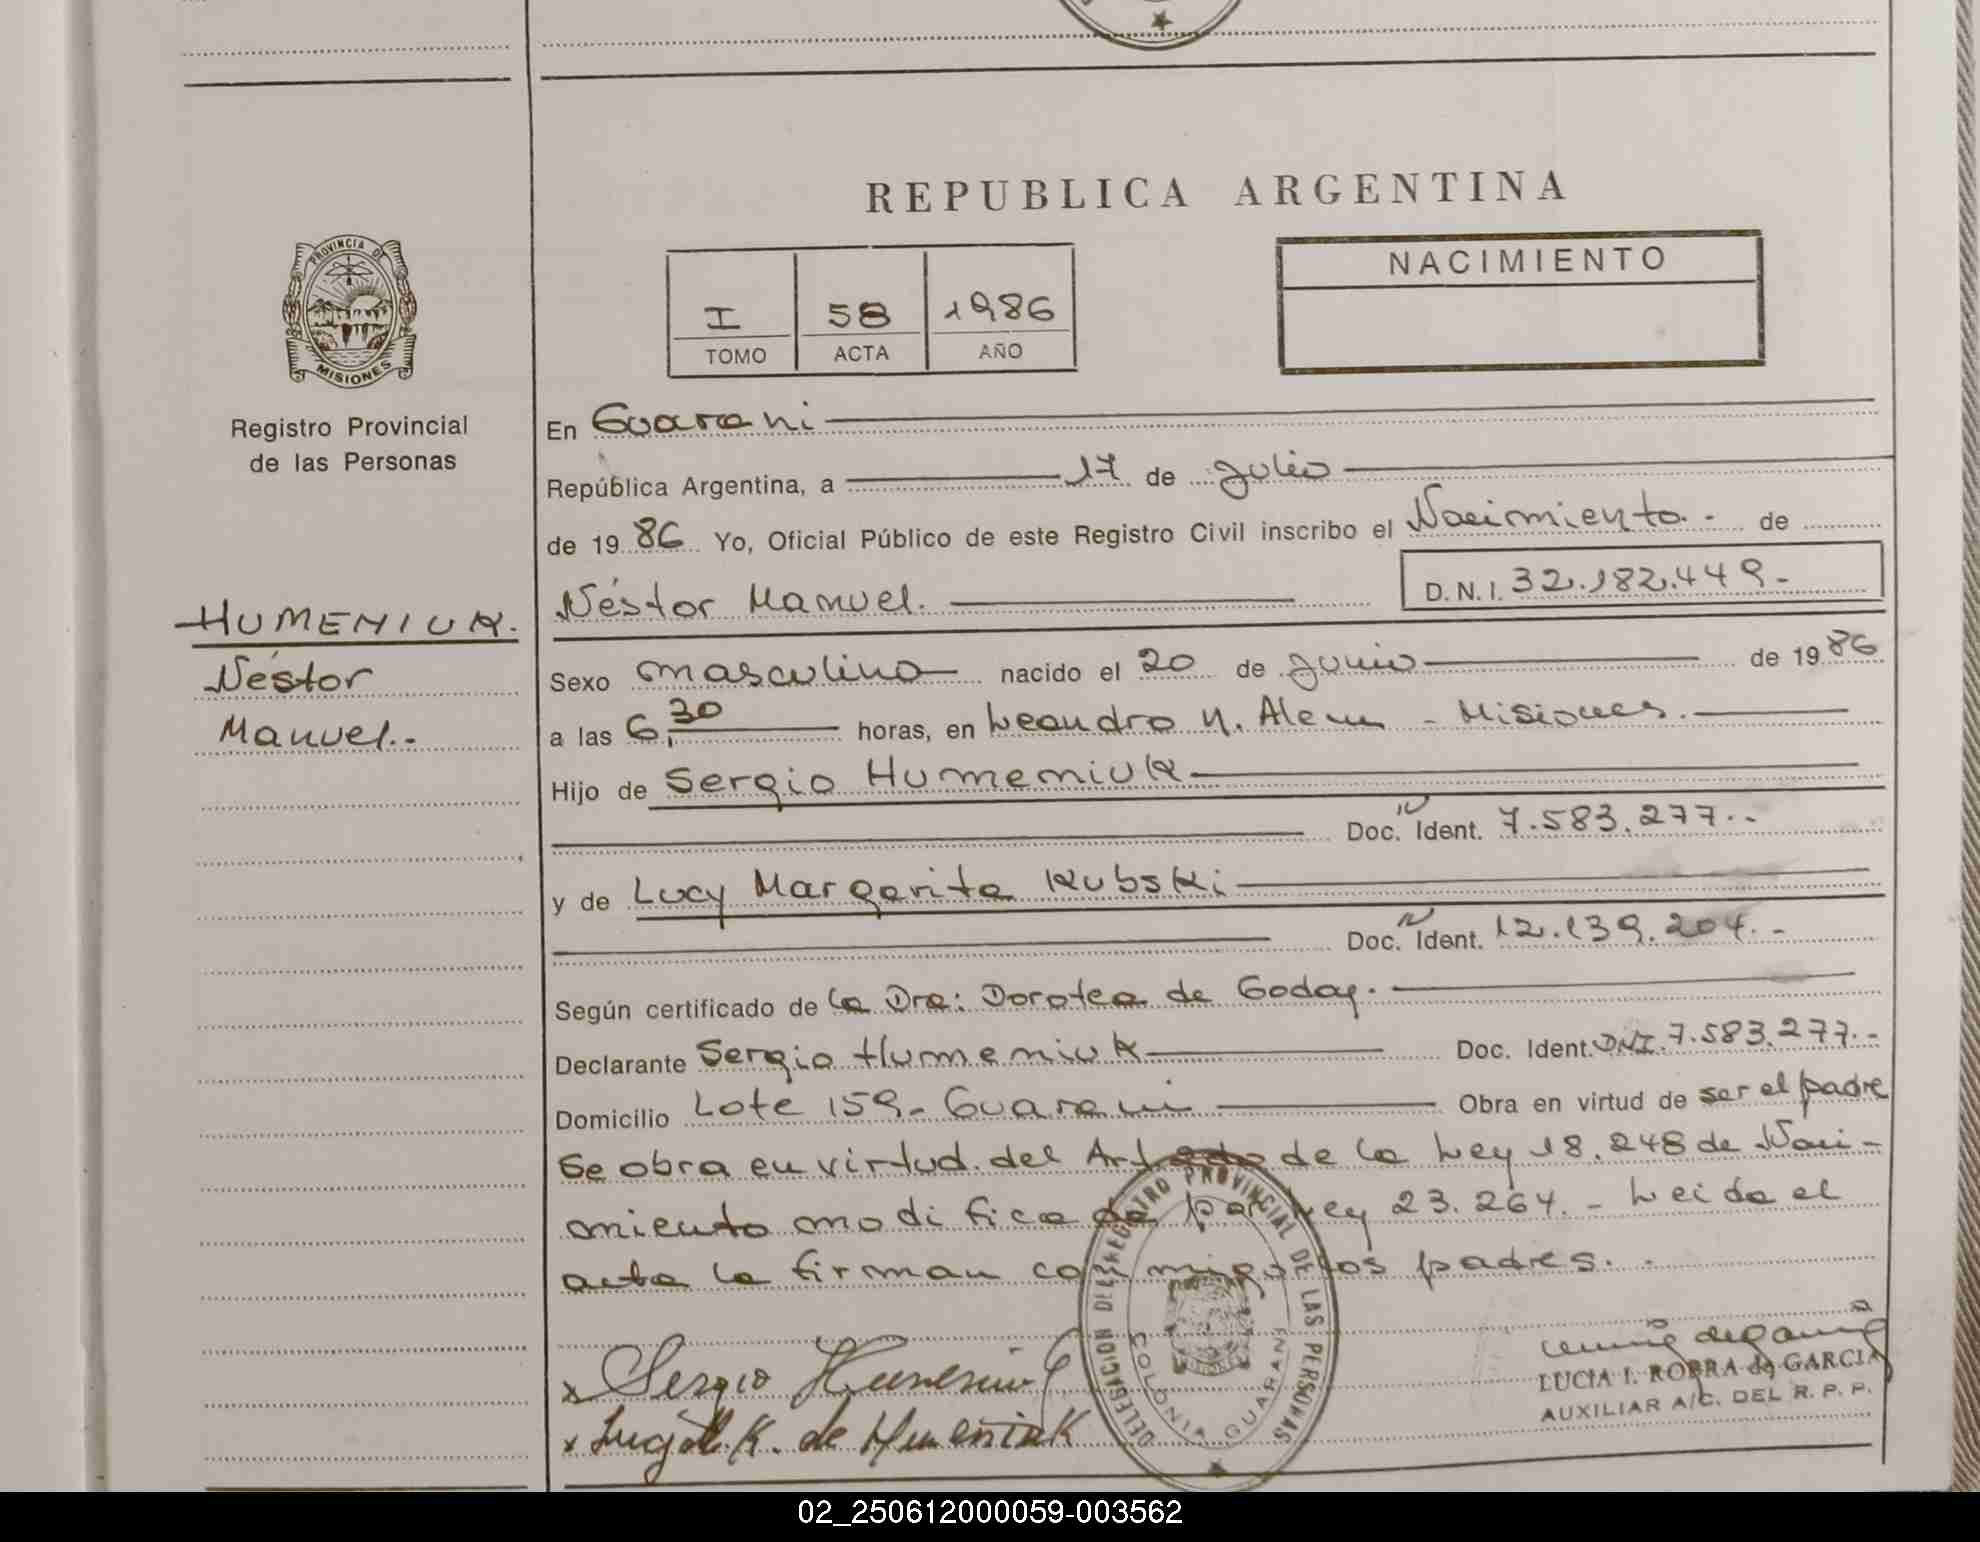 REPUBLICA ARGENTINA
PROVINCIA DE
MISIONES
Registro Provincial
de las Personas
HUMENIUK.
Néstor
Manuel.-
I 58 1986
TOMO ACTA AÑO
NACIMIENTO
En Guarani
República Argentina, a 17 de julio
de 1986 Yo, Oficial Público de este Registro Civil inscribo el Nacimiento.- de
Néstor Manuel. D.N.I. 32.182.449.-
Sexo masculino nacido el 20 de junio de 1986
a las 6,30 horas, en Leandro N. Alem - Misiones.
Hijo de Sergio Humeniuk
Doc. N Ident. 7.583.277.-
y de Lucy Margarita Kubski
Doc. N Ident. 12.139.204.-
Según certificado de la Dra: Dorotea de Godoy.
Declarante Sergio Humeniuk Doc. Ident. DNI.7.583.277.-
Domicilio Lote 159.- Guarani Obra en virtud de ser el padre
Se obra en virtud del Art de la Ley 18.248 de Naci-
miento modificada por Ley 23.264.- Leida el
acta la firman conmigo los padres.-
DELEGACION DEL REGISTRO PROVINCIAL DE LAS PERSONAS
COLONIA GUARANI
x Sergio Humeniuk
x Lucy M. K. de Humeniuk
LUCIA I. ROBRA de GARCIA
AUXILIAR A/C. DEL R. P. P.
02_250612000059-003562